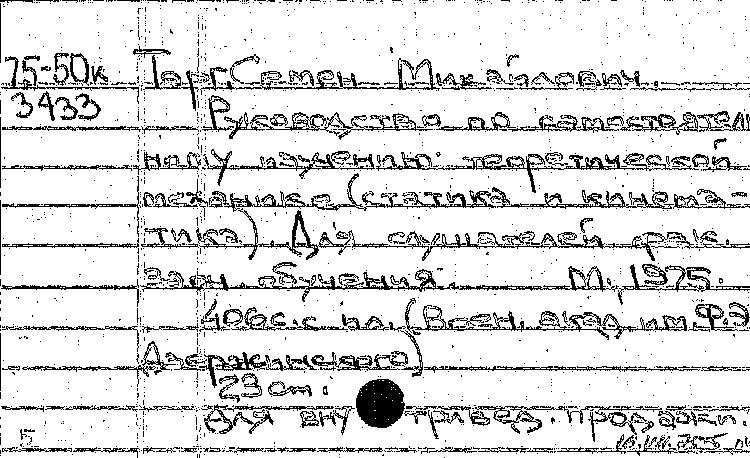 75-50к Торг, Семен Михайлович.
3433 Руководство по самостоятель
ному изучению теоретической
механике (статика и кинема-
тика). Для слушателей фак.
заоч. обучения. М., 1975.
406с. с ил. (Воен. акад. им. Ф.Э
Дзержинского)
23 cm.
Для вну триввед. продажи.
5